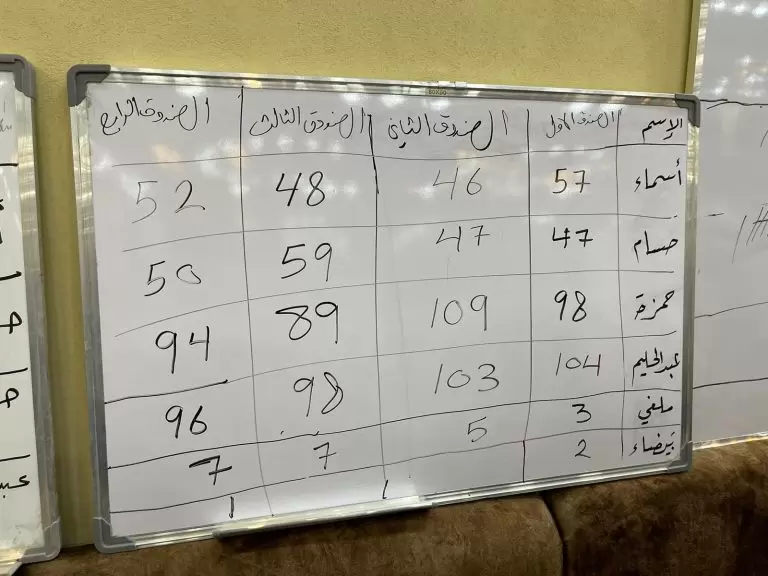 الإسم الصندوق الاول الصندوق الثاني الصندوق الثالث الصندوق الرابع
أسماء 57 46 48 52
حسام 47 47 59 50
حمزة 98 109 89 94
عبدالحليم 104 103 98 96
ملغي 3 5 7 7
بيضاء 2 1 1